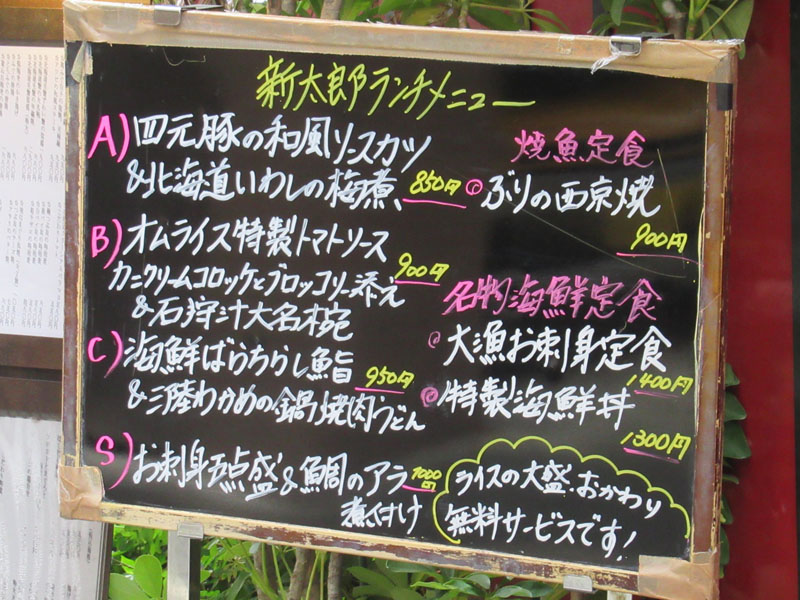 新太郎ランチメニュー
A) 四元豚の和風ソースカツ
&北海道いわしの梅煮、 850円
B) オムライス特製トマトソース
900円
カニクリームコロッケとブロッコリー添え
&石狩汁大名椀
C) 海鮮ばらちらし鮨 950円
&三陸わかめの鍋焼肉うどん
S) お刺身五点盛&鯛のアラ 1000円
煮付け
焼魚定食
ぶりの西京焼
900円
名物海鮮定食
大漁お刺身定食
1400円
特製海鮮丼
1300円
ライスの大盛・おかわり
無料サービスです!